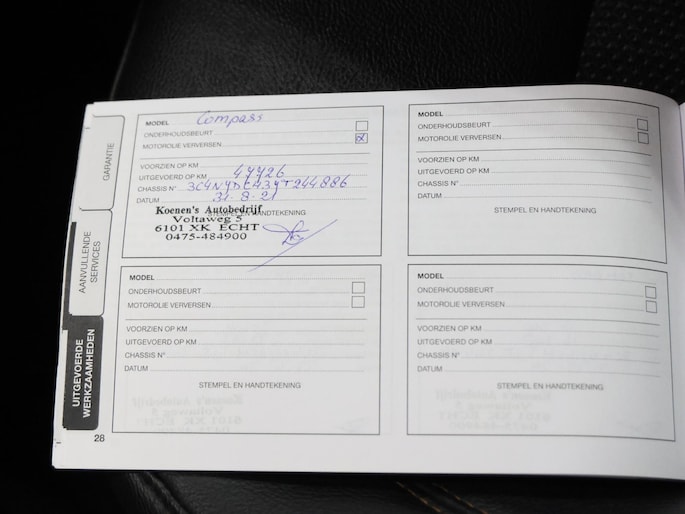 GARANTIE
AANVULLENDE
SERVICES
UITGEVOERDE
WERKZAAMHEDEN
MODEL Compass
ONDERHOUDSBEURT
MOTOROLIE VERVERSEN
VOORZIEN OP KM
UITGEVOERD OP KM 47726
CHASSIS N°
DATUM 31-8-21
STEMPEL EN HANDTEKENING
Koenen's Autobedrijf
Voltaweg 5
6101 XK ECHT
0475-484900
MODEL
ONDERHOUDSBEURT
MOTOROLIE VERVERSEN
VOORZIEN OP KM
UITGEVOERD OP KM
CHASSIS N°
DATUM
STEMPEL EN HANDTEKENING
MODEL
ONDERHOUDSBEURT
MOTOROLIE VERVERSEN
VOORZIEN OP KM
UITGEVOERD OP KM
CHASSIS N°
DATUM
STEMPEL EN HANDTEKENING
MODEL
ONDERHOUDSBEURT
MOTOROLIE VERVERSEN
VOORZIEN OP KM
UITGEVOERD OP KM
CHASSIS N°
DATUM
STEMPEL EN HANDTEKENING
28